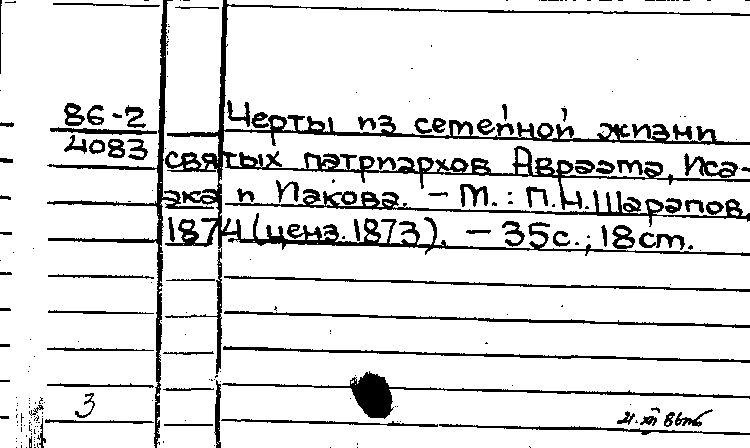 86-2
4083
Черты из семейной жизни
святых патриархов Авраама, Иса-
ака и Иакова. – М.: П.Н.Шарапов,
1874 (ценз.1873). – 35с.; 18см.
3